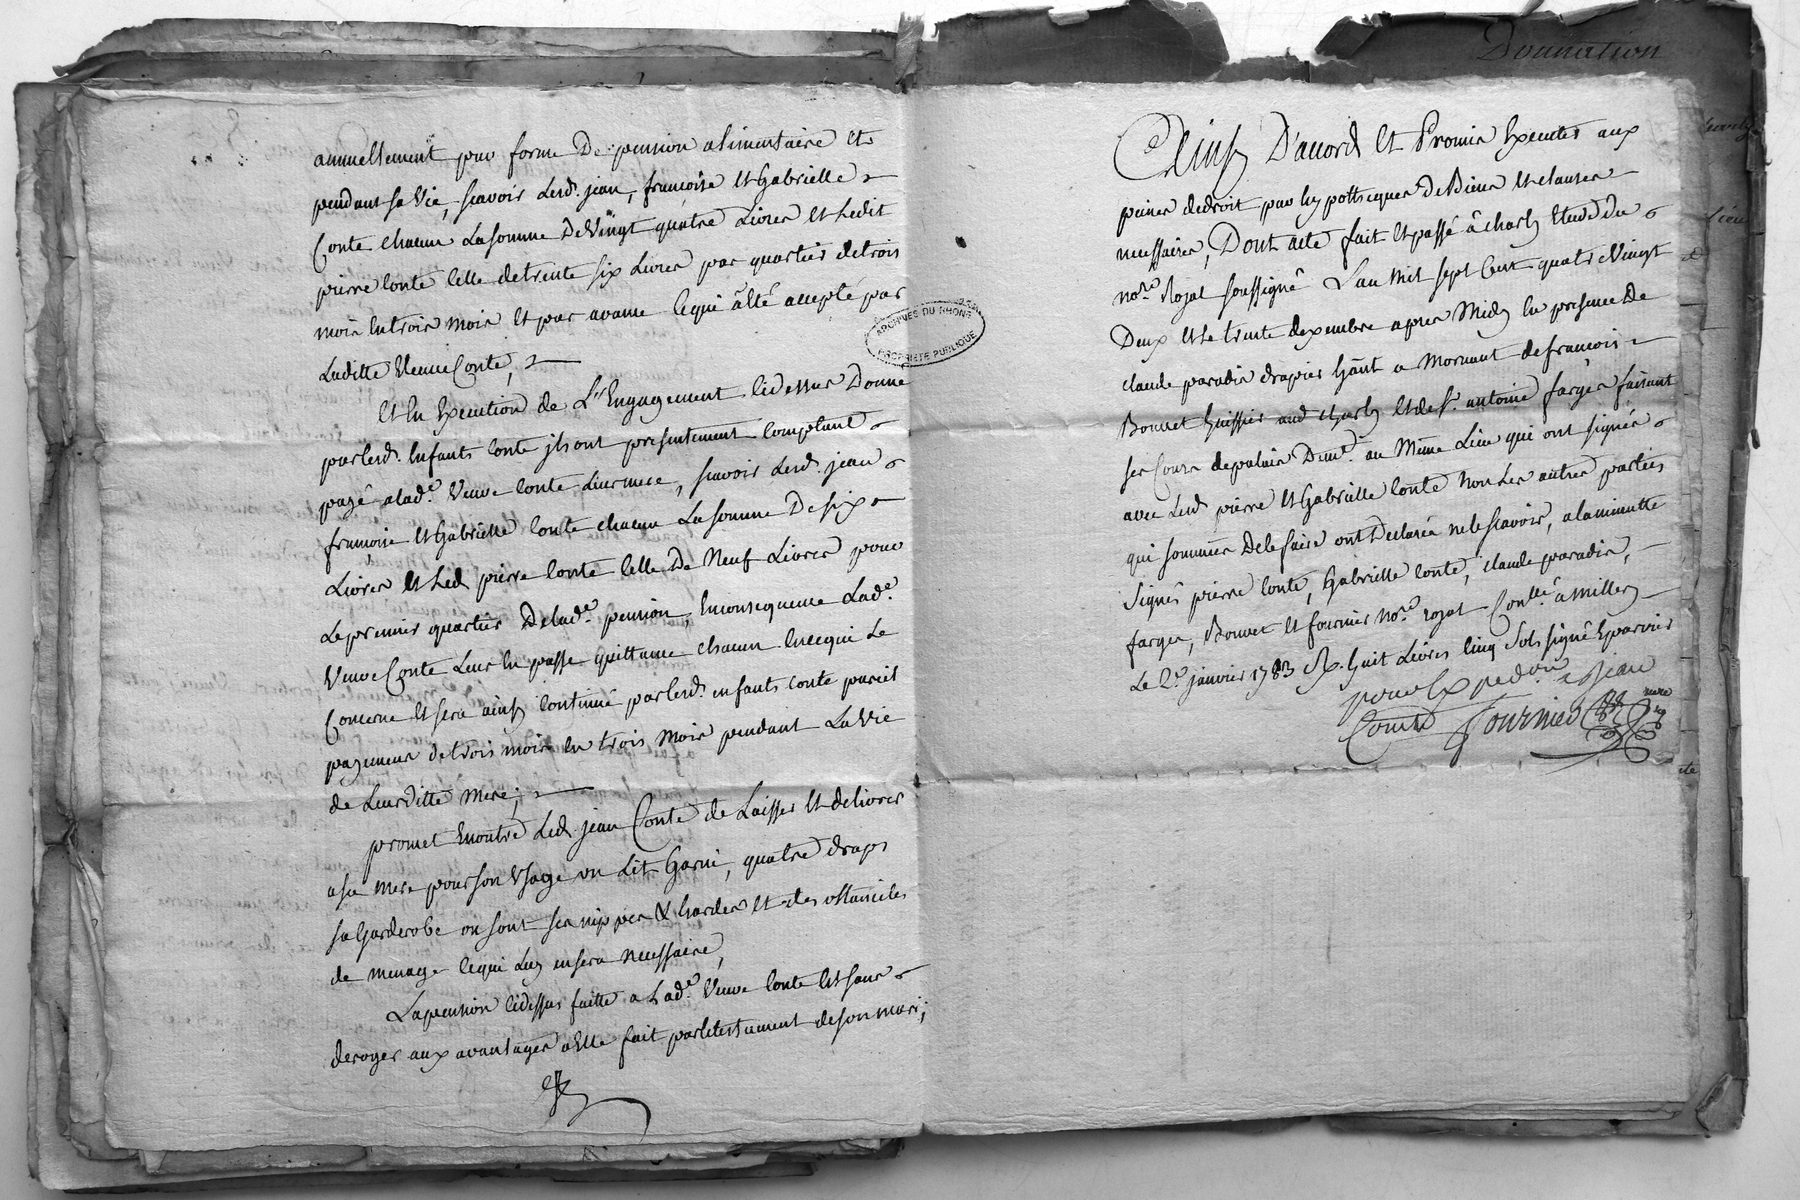 annuellement par forme De pension alimentaire et
pendant sa vie, scavoir lesd. jean, francoise et Gabrielle
Conte chacun La somme De Vingt quatre Livres et Ledit
pierre Conte celle de trente six Livres par quartier de trois
mois en trois mois et par avance ce qui a été accepté par
Laditte Veuve Conte,
et En Execution de L'Engagement cidessus Donné
par lesd. Enfants Conte jls ont presentement comptant
payé a lad.e Veuve Conte Leur mere, scavoir Lesd. jean
francoise et Gabrielle Conte chacun La somme De six
Livres et Led. pierre Conte celle De Neuf Livres pour
Le premier quartier De lad.e pension, En consequence Lad.e
Veuve Conte Leur En passe quittance chacun En ce qui Le
Concerne et sera ainsy continué par lesd. enfants Conte pareil
payement de trois mois en trois mois pendant La Vie
de Leur ditte Mere;
promet En outre Led. jean Conte de Laisser et delivrer
a sa mere pour son Usage un Lit Garni, quatre draps
sa Garderobe ou sont ses nippes & hardes et des ustancilles
de menage ce qui Luy en sera necessaire,
La pension cidessus faitte a Lad.e Veuve Conte est sans
deroger aux avantages a elle fait par le testament de son mari;
ARCHIVES DU RHONE
PROPRIETE PUBLIQUE
Donnation
Ainsy D'accord Et Promis Executer aux
peines de droit par hypotheques De Biens et clauses
necessaires, Dont acte fait et passé à charly Etude du
no.re Royal soussigné L'an Mil sept Cent quatre Vingt
Deux et Le trente dexembre apres Midy En presence De
claude paradis drapier hãnt a Mornant de francois
Bouvet huissier aud charly et de s.r antoine farges faisant
ses Cours de palais Dem.t au Même Lieu qui ont signés
avec Lesd pierre et Gabrielle Conte Non Les autres parties
qui sommés De le faire ont Declarés ne le scavoir, a la minutte
signés pierre Conte, Gabrielle Conte, claude paradis,
farges, Bouvet et fournier no.re royal Con.llé à millery
Le 2.e janvier 1783 R. huit Livres cinq sols signé Eparvier
pour Expedon a jean
Conte Fournier